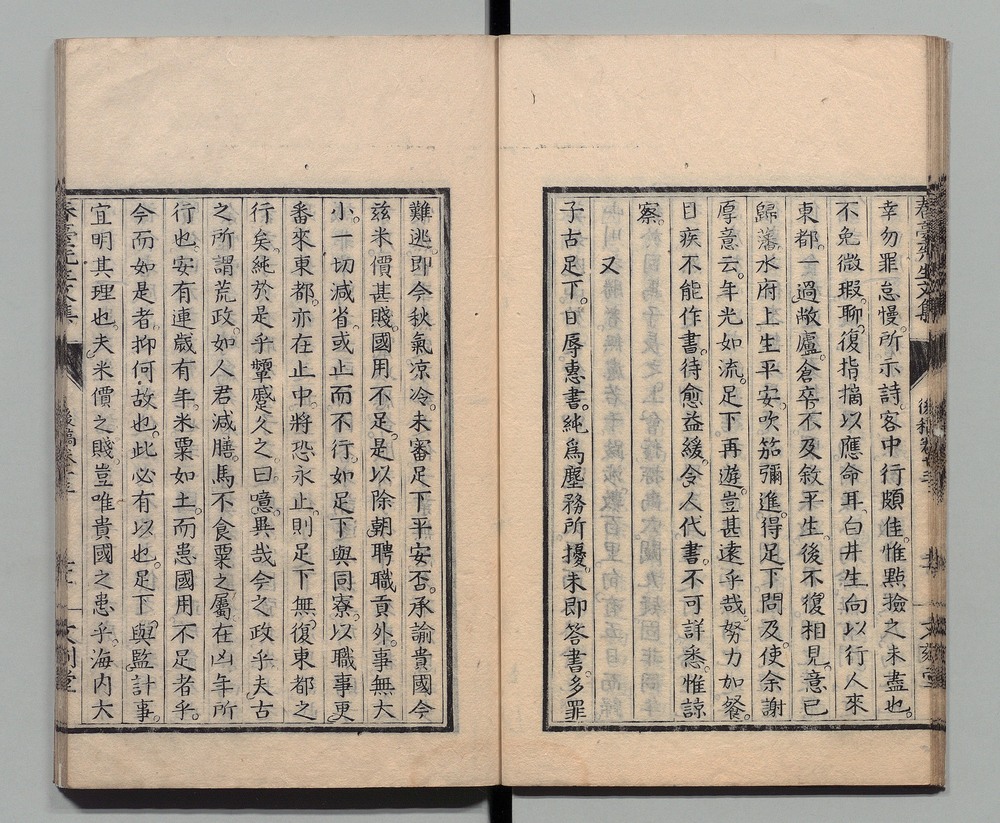 幸勿罪怠慢。所示詩。客中行頗佳。惟點撿之未盡也。
不免微瑕。聊復指摘以應命耳。白井生向以行人來
東都。一過敝廬。倉卒不及敘平生。後不復相見。意已
歸藩。水府上生平安。吹笳彌進。得足下問及。使余謝
厚意云。年光如流。足下再遊。豈甚遠乎哉。努力加餐。
目疾不能作書。待愈益緩。令人代書。不可詳悉。惟諒
察。
又
子古足下。日辱惠書。純爲塵務所擾。未即答書。多罪
難逃。即今秋氣凉冷。未審足下平安否。承諭貴國今
玆米價甚賤。國用不足。是以除朝聘職貢外。事無大
小。一切減省。或止而不行。如足下與同寮。以職事更
番來東都。亦在止中。將恐永止。則足下無復東都之
行矣。純於是乎顰蹙久之。曰。噫。異哉今之政乎。夫古
之所謂荒政。如人君減膳。馬不食粟之屬。在凶年所
行也。安有連歲有年。米粟如土。而患國用不足者乎。
今而如是者。抑何故也。此必有以也。足下與監計事。
宜明其理也。夫米價之賤。豈唯貴國之患乎。海内大